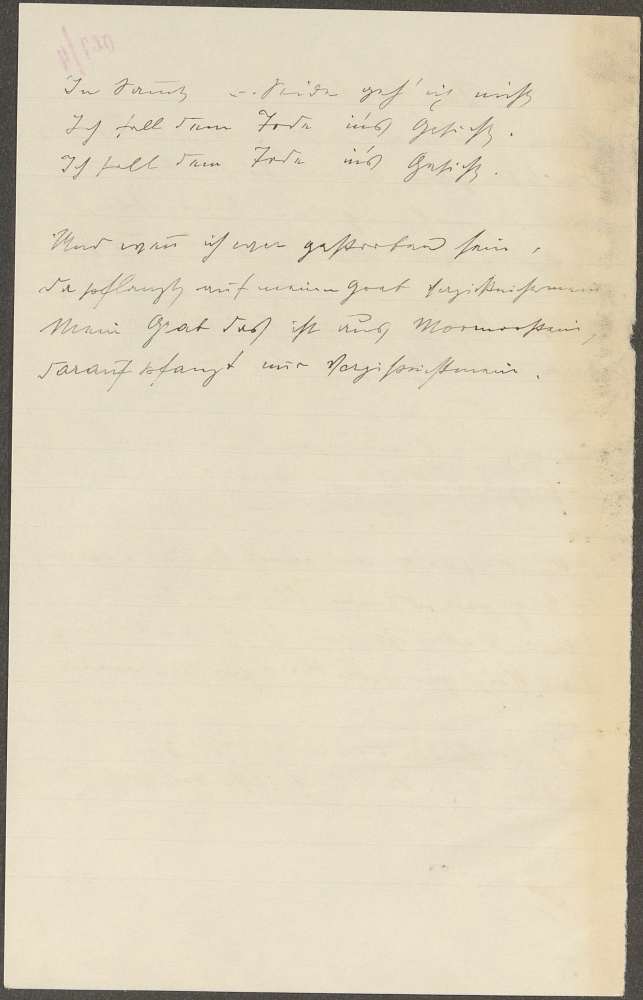 In Samt u. Seide geh' ich nicht
Ich fall dem Tode in's Gesicht.
Ich fall dem Tode in's Gesicht.
Und wenn ich wer gestorben sein,
da pflanzt auf meinen Grab Vergissnichtmein
Mein Grab das ist aus Marmorstein,
darauf pflanzt mir Vergissnichtmein.